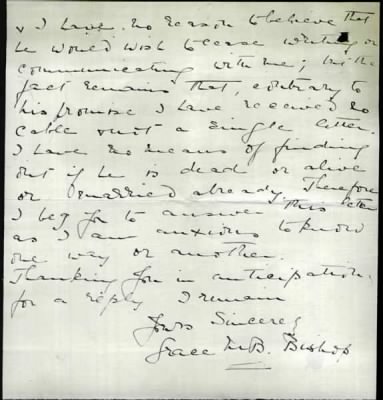 & I have no reason to believe that
he would wish to cease writing or
communicating with me; but the
fact remains that, contrary to
his promise I have received no
cable & not a single letter.
I have no means of finding
out if he is dead or alive
or married already. Therefore
I beg you to answer this letter
as I am anxious to know
one way or another.
Thanking you in anticipation
for a reply I remain
Yours Sincerely
Grace M.B. Bishop